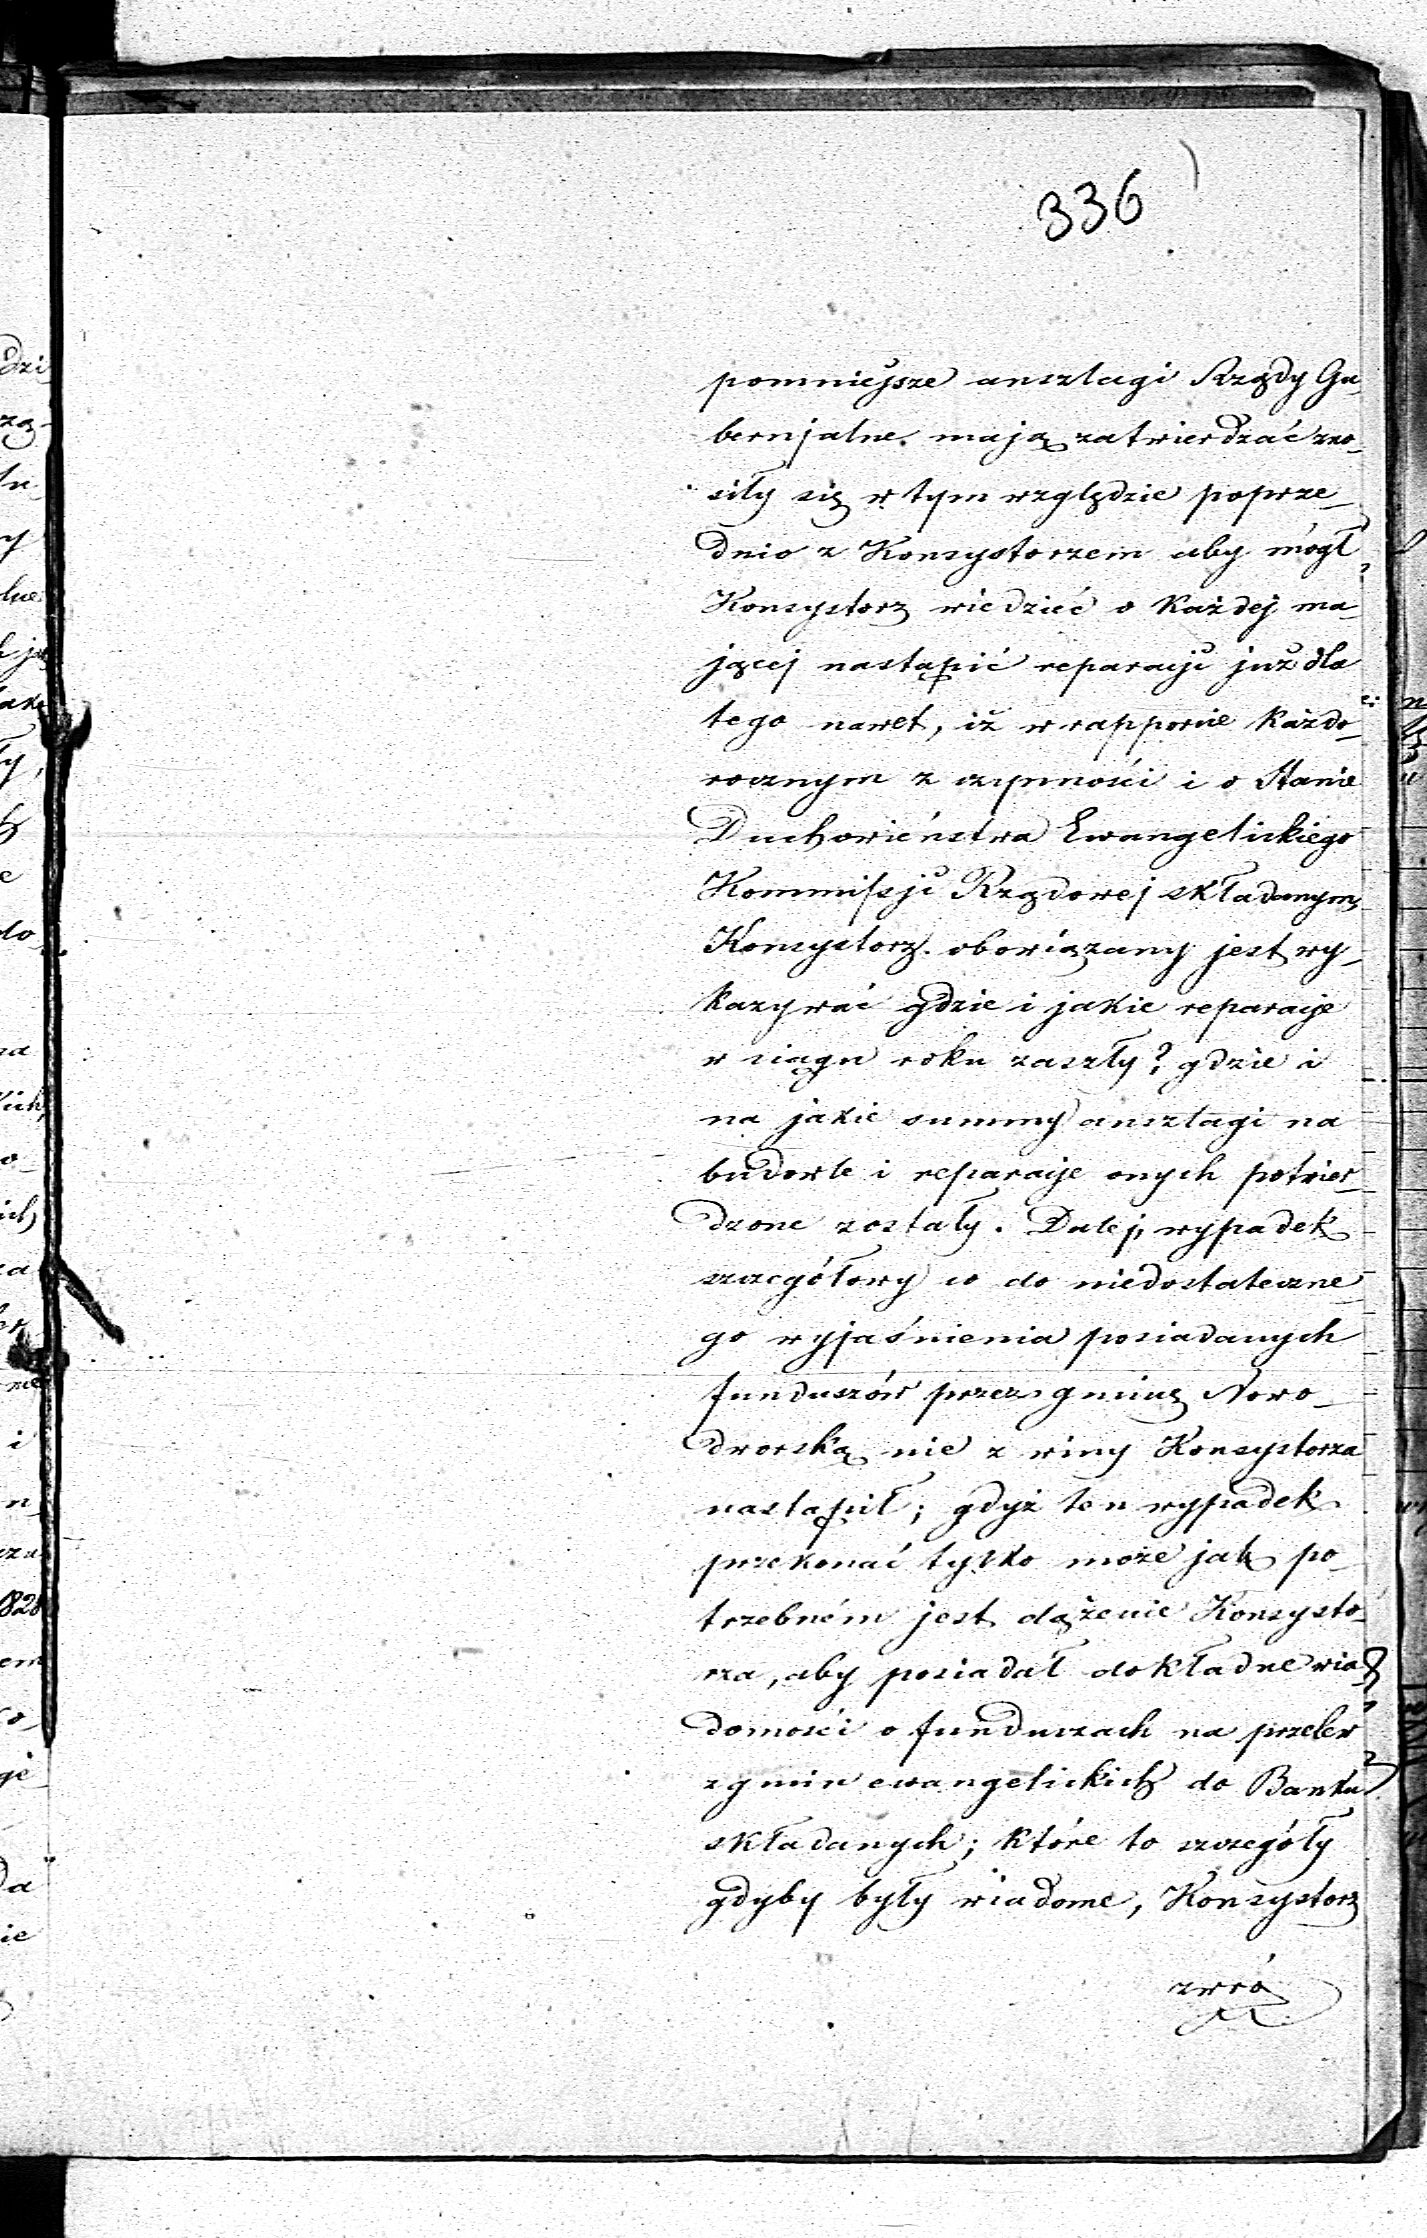 336
pomniejsze anszlagi Rządy Gu-
bernjalne mają zatwierdzać zno-
siły się w tym względzie poprze-
dnio z Konsystorzem aby mógł
Konsystorz wiedzieć o każdej ma-
jącej nastąpić reparacji już dla
tego nawet, iż w rapporcie każdo-
rocznym z czynności i o Stanie
Duchowieństwa Ewangelickiego
Kommissji Rządowej składanym,
Konsystorz obowiązany jest wy-
kazywać gdzie i jakie reparacje
w ciągu roku zaszły? gdzie i
na jakie summy anszlagi na
budowle i reparacje onych potwier-
dzone zostały. Dalej, wypadek
szczegółowy co do niedostateczne-
go wyjaśnienia posiadanych
funduszów przez gminę Nowo-
dworską nie z winy Konsystorza
nastąpił; gdyż ten wypadek
przekonać tylko może jak po-
trzebném jest dążenie Konsysto-
rza, aby posiadał dokładne wia-
domości o funduszach na przelew
z gmin ewangelickich do Banku
składanych; które to szczegóły
gdyby były wiadome, Konsystorz
zwró